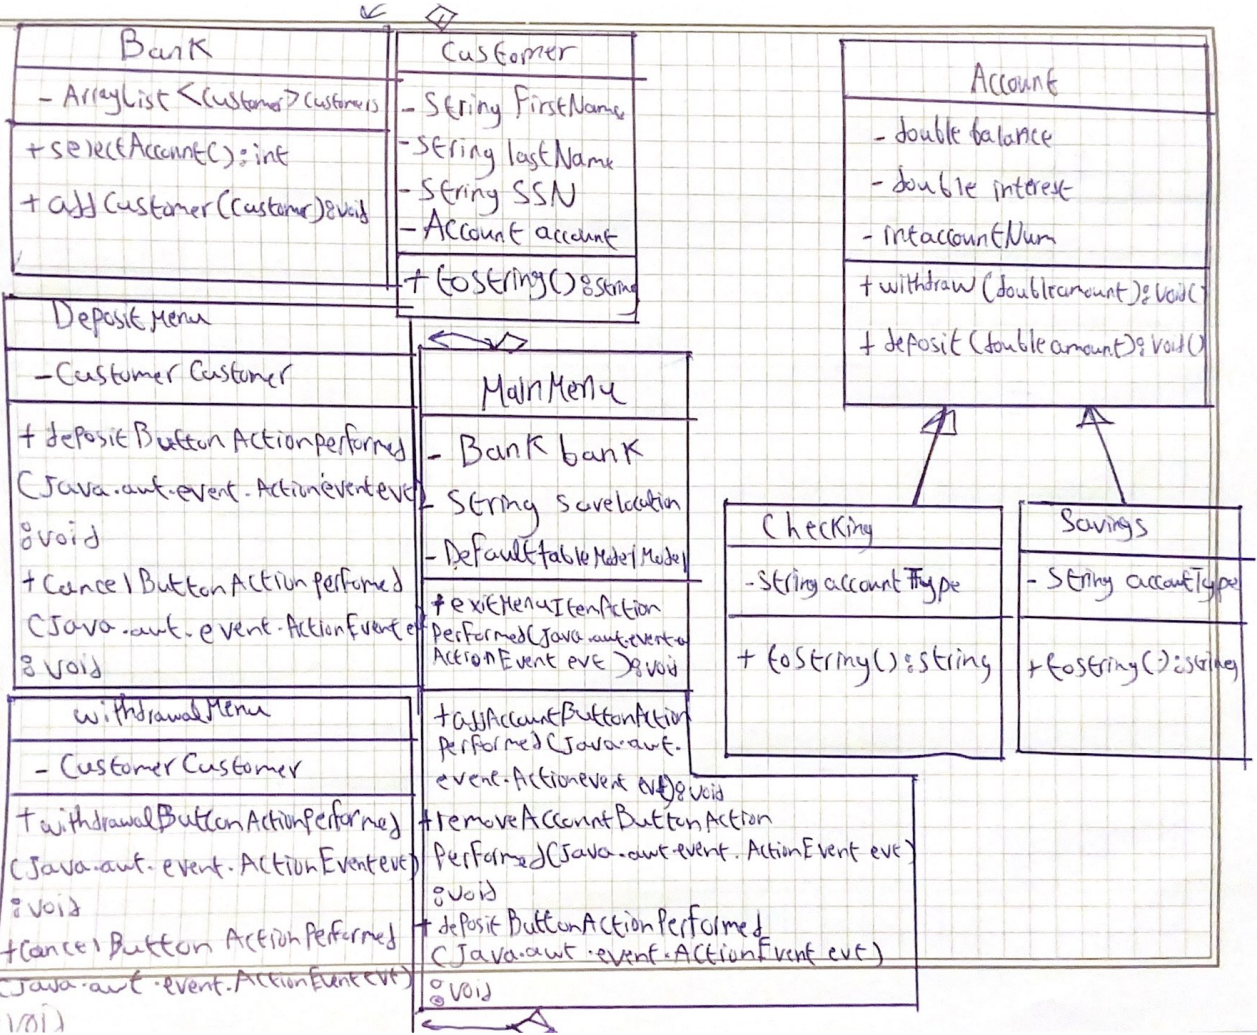 Bank
- ArrayList <Customer> customers
+ selectAccount():int
+ addCustomer(Customer):void
Customer
- String FirstName
- String lastName
- String SSN
- Account account
+ toString():String
Account
- double balance
- double interest
- int accountNum
+ withdraw (double amount): void()
+ deposit (double amount): void()
Deposit Menu
- Customer Customer
+ depositButtonActionperformed
(Java.awt.event.Actionevent evt
:void
+ CancelButtonActionperfomed
(Java.awt.event.ActionEvent e
: void
MainMenu
- Bank bank
- String savelocation
- DefaulttableModel Model
+ exitMenuItemAction
Performed(Java.awt.event.
ActionEvent evt ):void
+ addAccountButtonAction
Performed(Java.awt.
event.Actionevent evt):void
+ removeAccountButtonAction
Performed(Java.awt.event.ActionEvent evt)
:void
+ depositButtonActionPerformed
(Java.awt.event.ActionEvent evt)
:void
Checking
- String accountType
+ toString():string
Savings
- String accoutType
+ toString():string
withdrawalMenu
- Customer Customer
+ withdrawalButtonActionPerformed
(Java.awt.event.ActionEvent evt)
:void
+ CancelButton ActionPerformed
(Java.awt.event.ActionEvent evt)
void